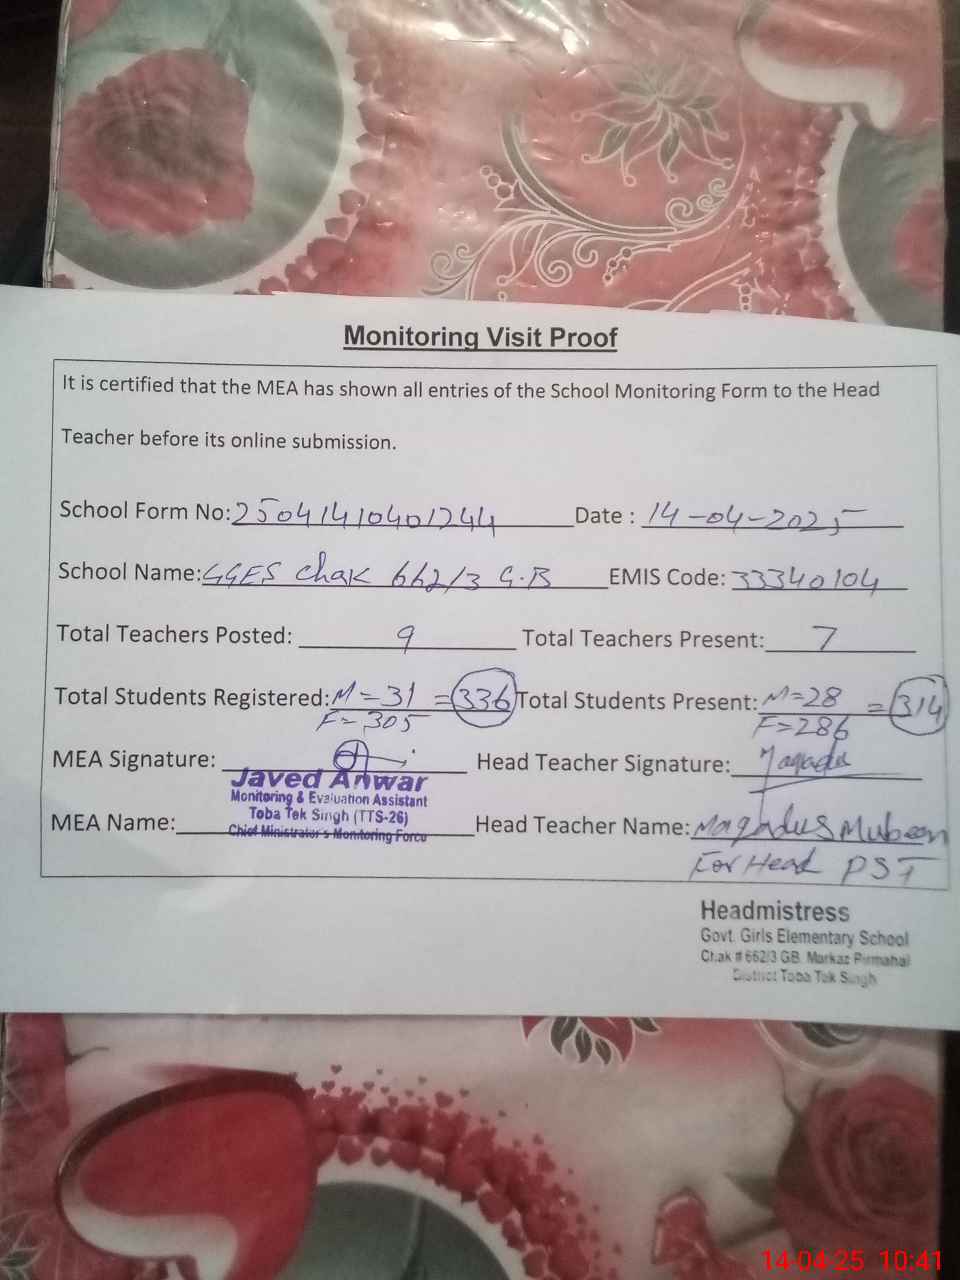 Monitoring Visit Proof
It is certified that the MEA has shown all entries of the School Monitoring Form to the Head
Teacher before its online submission.
School Form No: 25041410401244 Date : 14-04-2025
School Name: GGES Chak 662/3 G.B EMIS Code: 33340104
Total Teachers Posted: 9 Total Teachers Present: 7
Total Students Registered: M=31 = 336 Total Students Present: M=28 = 314
F=305 F=286
MEA Signature: Head Teacher Signature:
Javed Anwar
Monitoring & Evaluation Assistant
Toba Tek Singh (TTS-26)
Chief Ministrater's Monitoring Force
MEA Name: Head Teacher Name: Maqadus Mubeen
For Head PST
Headmistress
Govt. Girls Elementary School
Chak # 662/3 GB. Markaz Pirmahal
District Toba Tek Singh
14-04-25 10:41